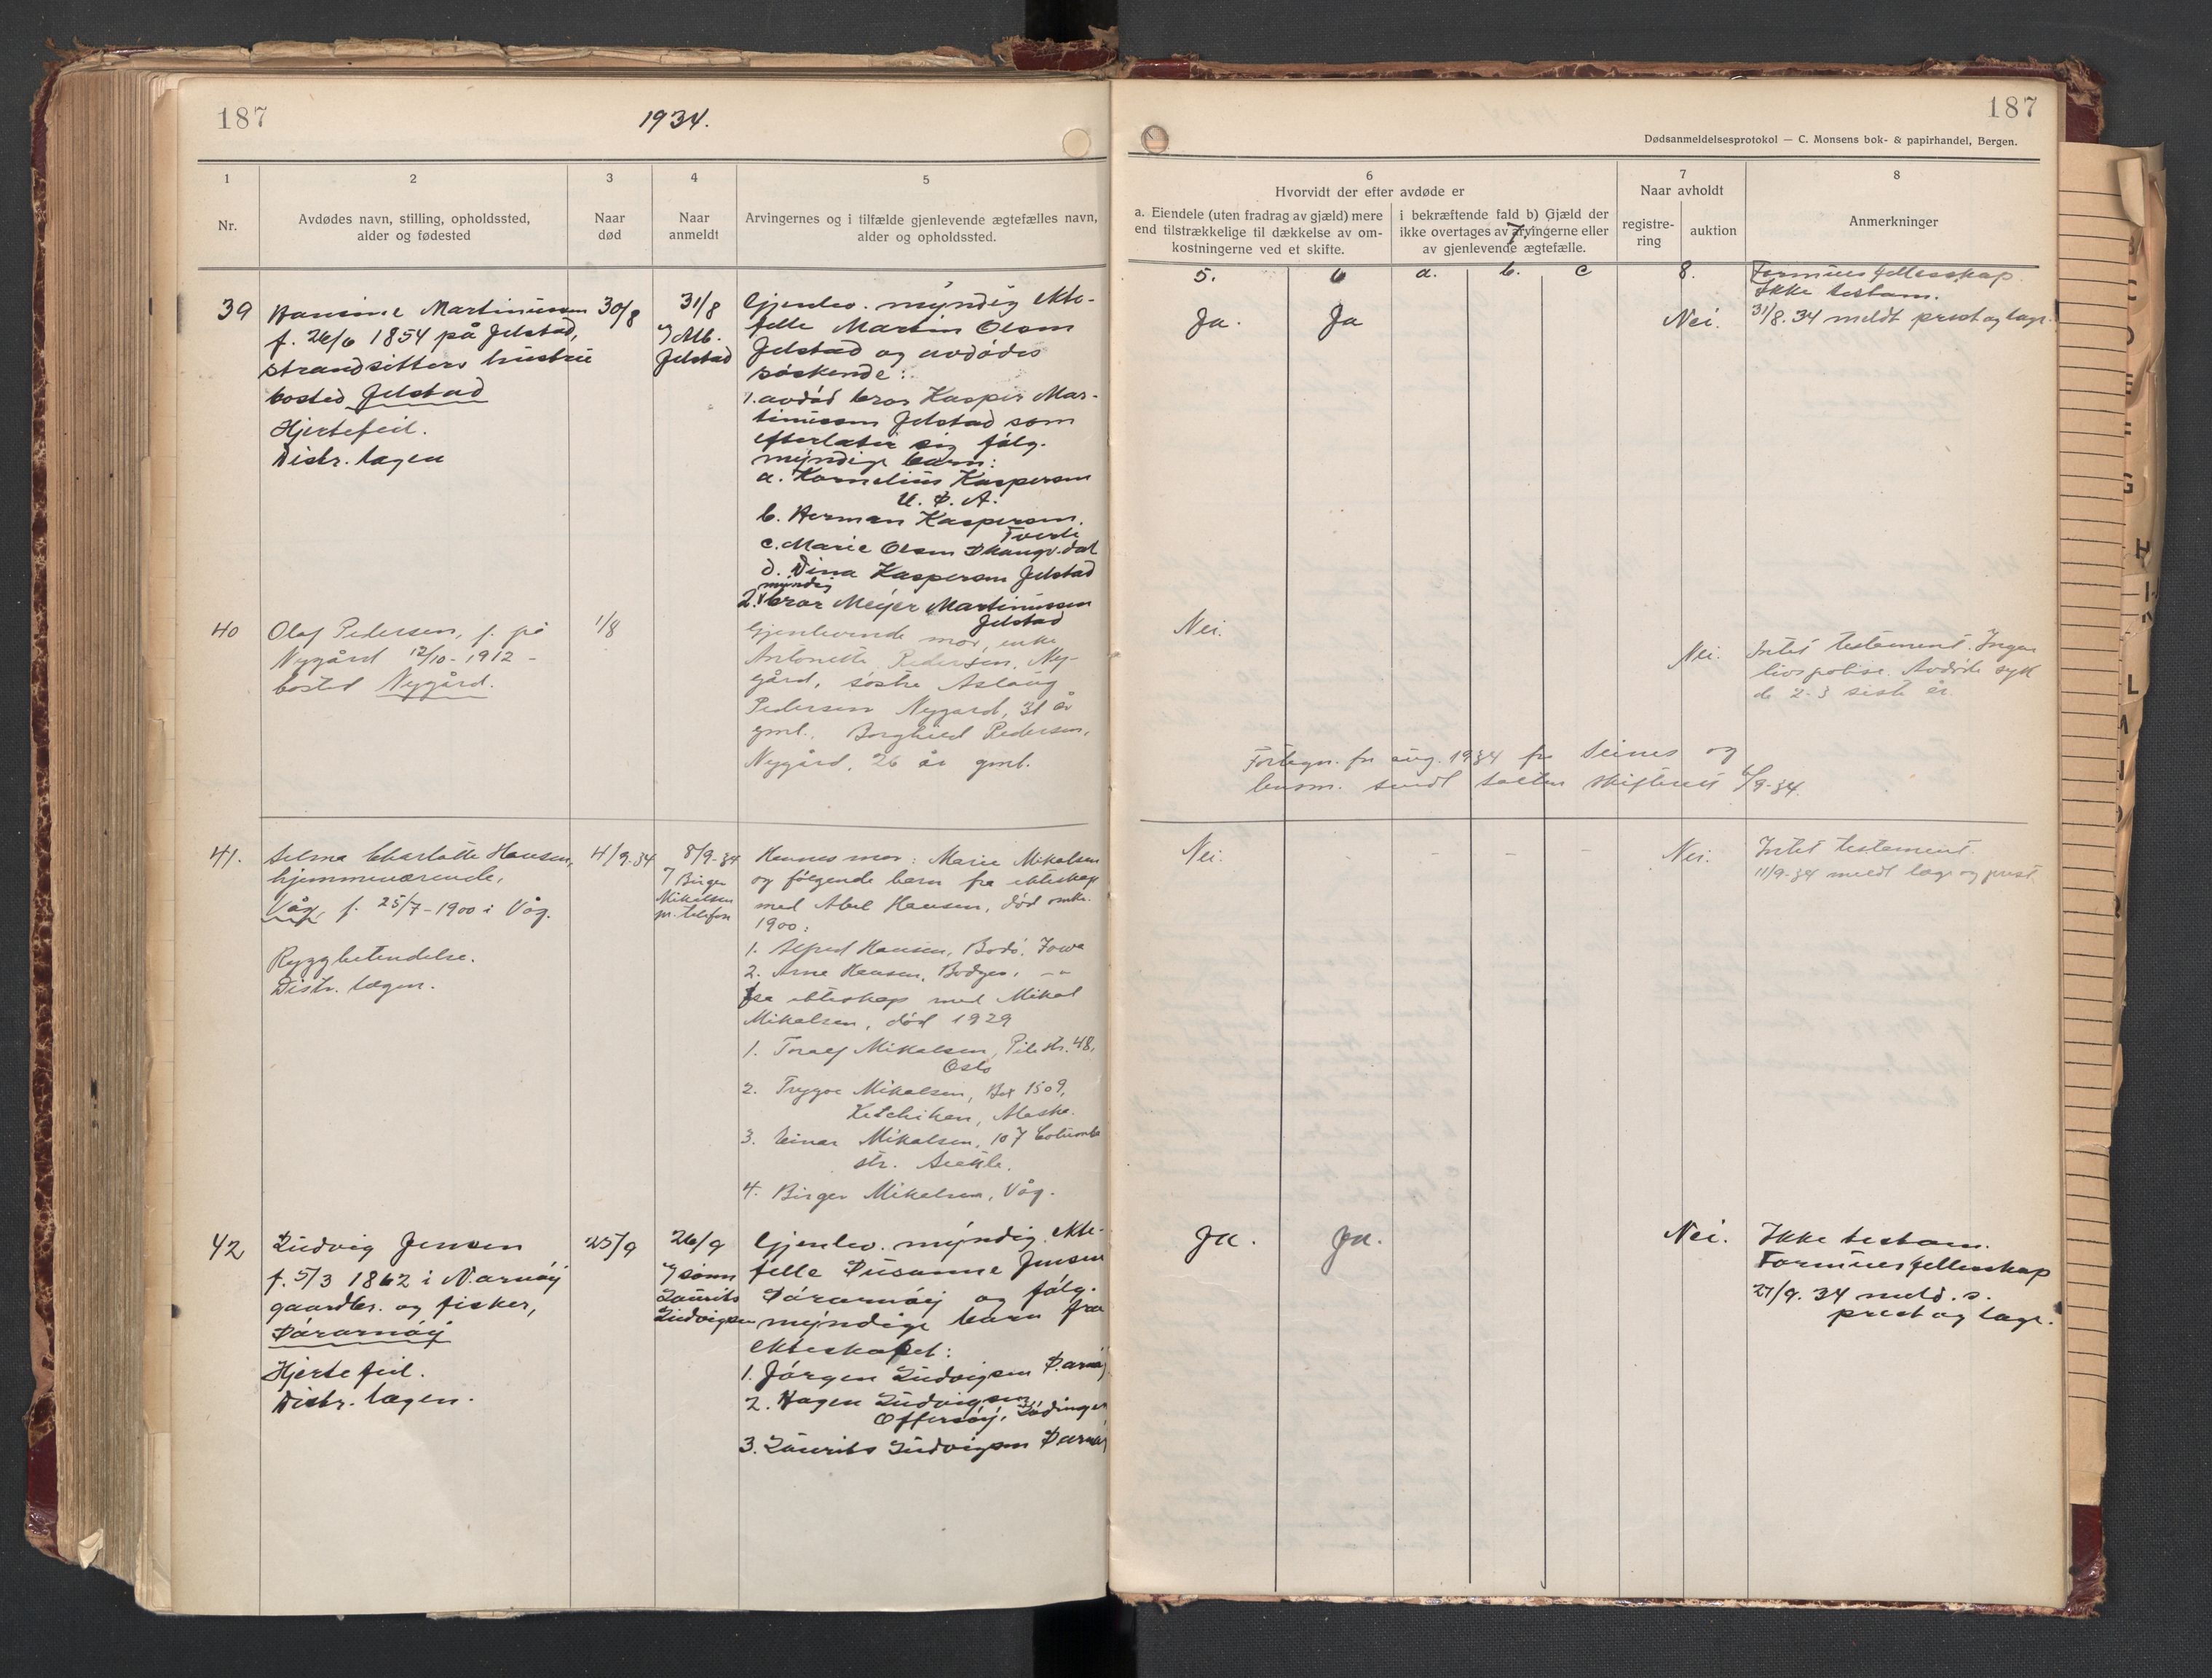 187
1934.
1
2
3
4
5
Nr.
Avdødes navn, stilling, opholdssted,
alder og fødested
Naar
død
Naar
anmeldt
Arvingernes og i tilfælde gjenlevende ægtefælles navn,
alder og opholdssted.
39
Hansine Martinussen
f. 26/6 1854 på Jelstad,
strandsitters hustru
bosted Jelstad
Hjertefeil.
Distr. lægen
30/8
31/8
Jelstad
Gjenlev. myndig ekte-
felle Martin Olsen
Jelstad og avdødes
søskende:
1. avdød bror Kasper Mar-
tinussen Jelstad som
efterlater sig følg.
myndige barn:
a. Kornelius Kaspersen
U. S. A.
b. Herman Kaspersen,
Tverli
c. Marie Olsen
d. Dina Kaspersen Jelstad
myndig
2. bror Meyer Martinussen
Jelstad
40
Olaf Pedersen, f. på
Nygård 12/10-1912 -
bosted Nygård.
1/8
Gjenlevende mor, enke
Antonette Pedersen, Ny-
gård, søstre Aslaug
Pedersen Nygard, 31 år
gml., Borghild Pedersen,
Nygård, 26 år gml.
41.
Selma Charlotte Hansen,
hjemmeværende,
Våg, f. 25/7-1900 i Våg.
Ryggbetendelse.
Distr. lægen.
4/9-34
8/9-34
Birger
Mikalsen
pr. telefon
Hennes mor: Marie Mikalsen
og følgende barn fra ekteskap
med Abel Hansen, død omkr.
1900:
1. Alfred Hansen, Iowa
2. Arne Hansen,
fra ekteskap med Mikal
Mikalsen, død 1929
1. Toralf Mikalsen, Pilestr. 48,
Oslo
2. Trygve Mikalsen, Box 1509,
Ketchikan, Alaska.
3. Einar Mikalsen, 107 Columbia
str. Seattle.
4. Birger Mikalsen, Våg.
42
Ludvig Jensen
f. 5/3 1862 i
gaardbr. og fisker,
Sørarnøy
Hjertefeil.
Distr. lægen.
25/9
26/9
sønn
Laurits
Ludvigsen
Gjenlev. myndig ekte-
felle Susanne Jensen
Sørarnøy og følg.
myndige barn fra
ekteskapet:
1. Jørgen Ludvigsen
2. Hagen Ludvigsen,
Offersøy, Lødingen
3. Laurits Ludvigsen
187
Dødsanmeldelsesprotokol — C. Monsens bok- & papirhandel, Bergen.
6
7
8
Hvorvidt der efter avdøde er
Naar avholdt
a. Eiendele (uten fradrag av gjæld) mere
end tilstrækkelige til dækkelse av om-
kostningerne ved et skifte.
i bekræftende fald b) Gjæld der
ikke overtages av arvingerne eller
av gjenlevende ægtefælle.
registre-
ring
auktion
Anmerkninger
7.
5.
6
a.
b.
c
8.
Formuesfellesskap
Ikke testam.
Ja.
Ja
Nei.
31/8.34 meldt prest og læge.
Nei.
Nei.
Intet testament. Ingen
livspolise. Avdøde syk
de 2-3 siste år.
Fortegn. for aug. 1934 fra Seines og
lensm. sendt Salten skifterett 6/9-34.
Nei.
-
-
-
-
Nei.
Intet testament.
11/9-34 meldt læge og prest.
Ja.
Ja.
Nei.
Ikke testam.
Formuesfellesskap
27/9.34 meld. s.
prest og læge.